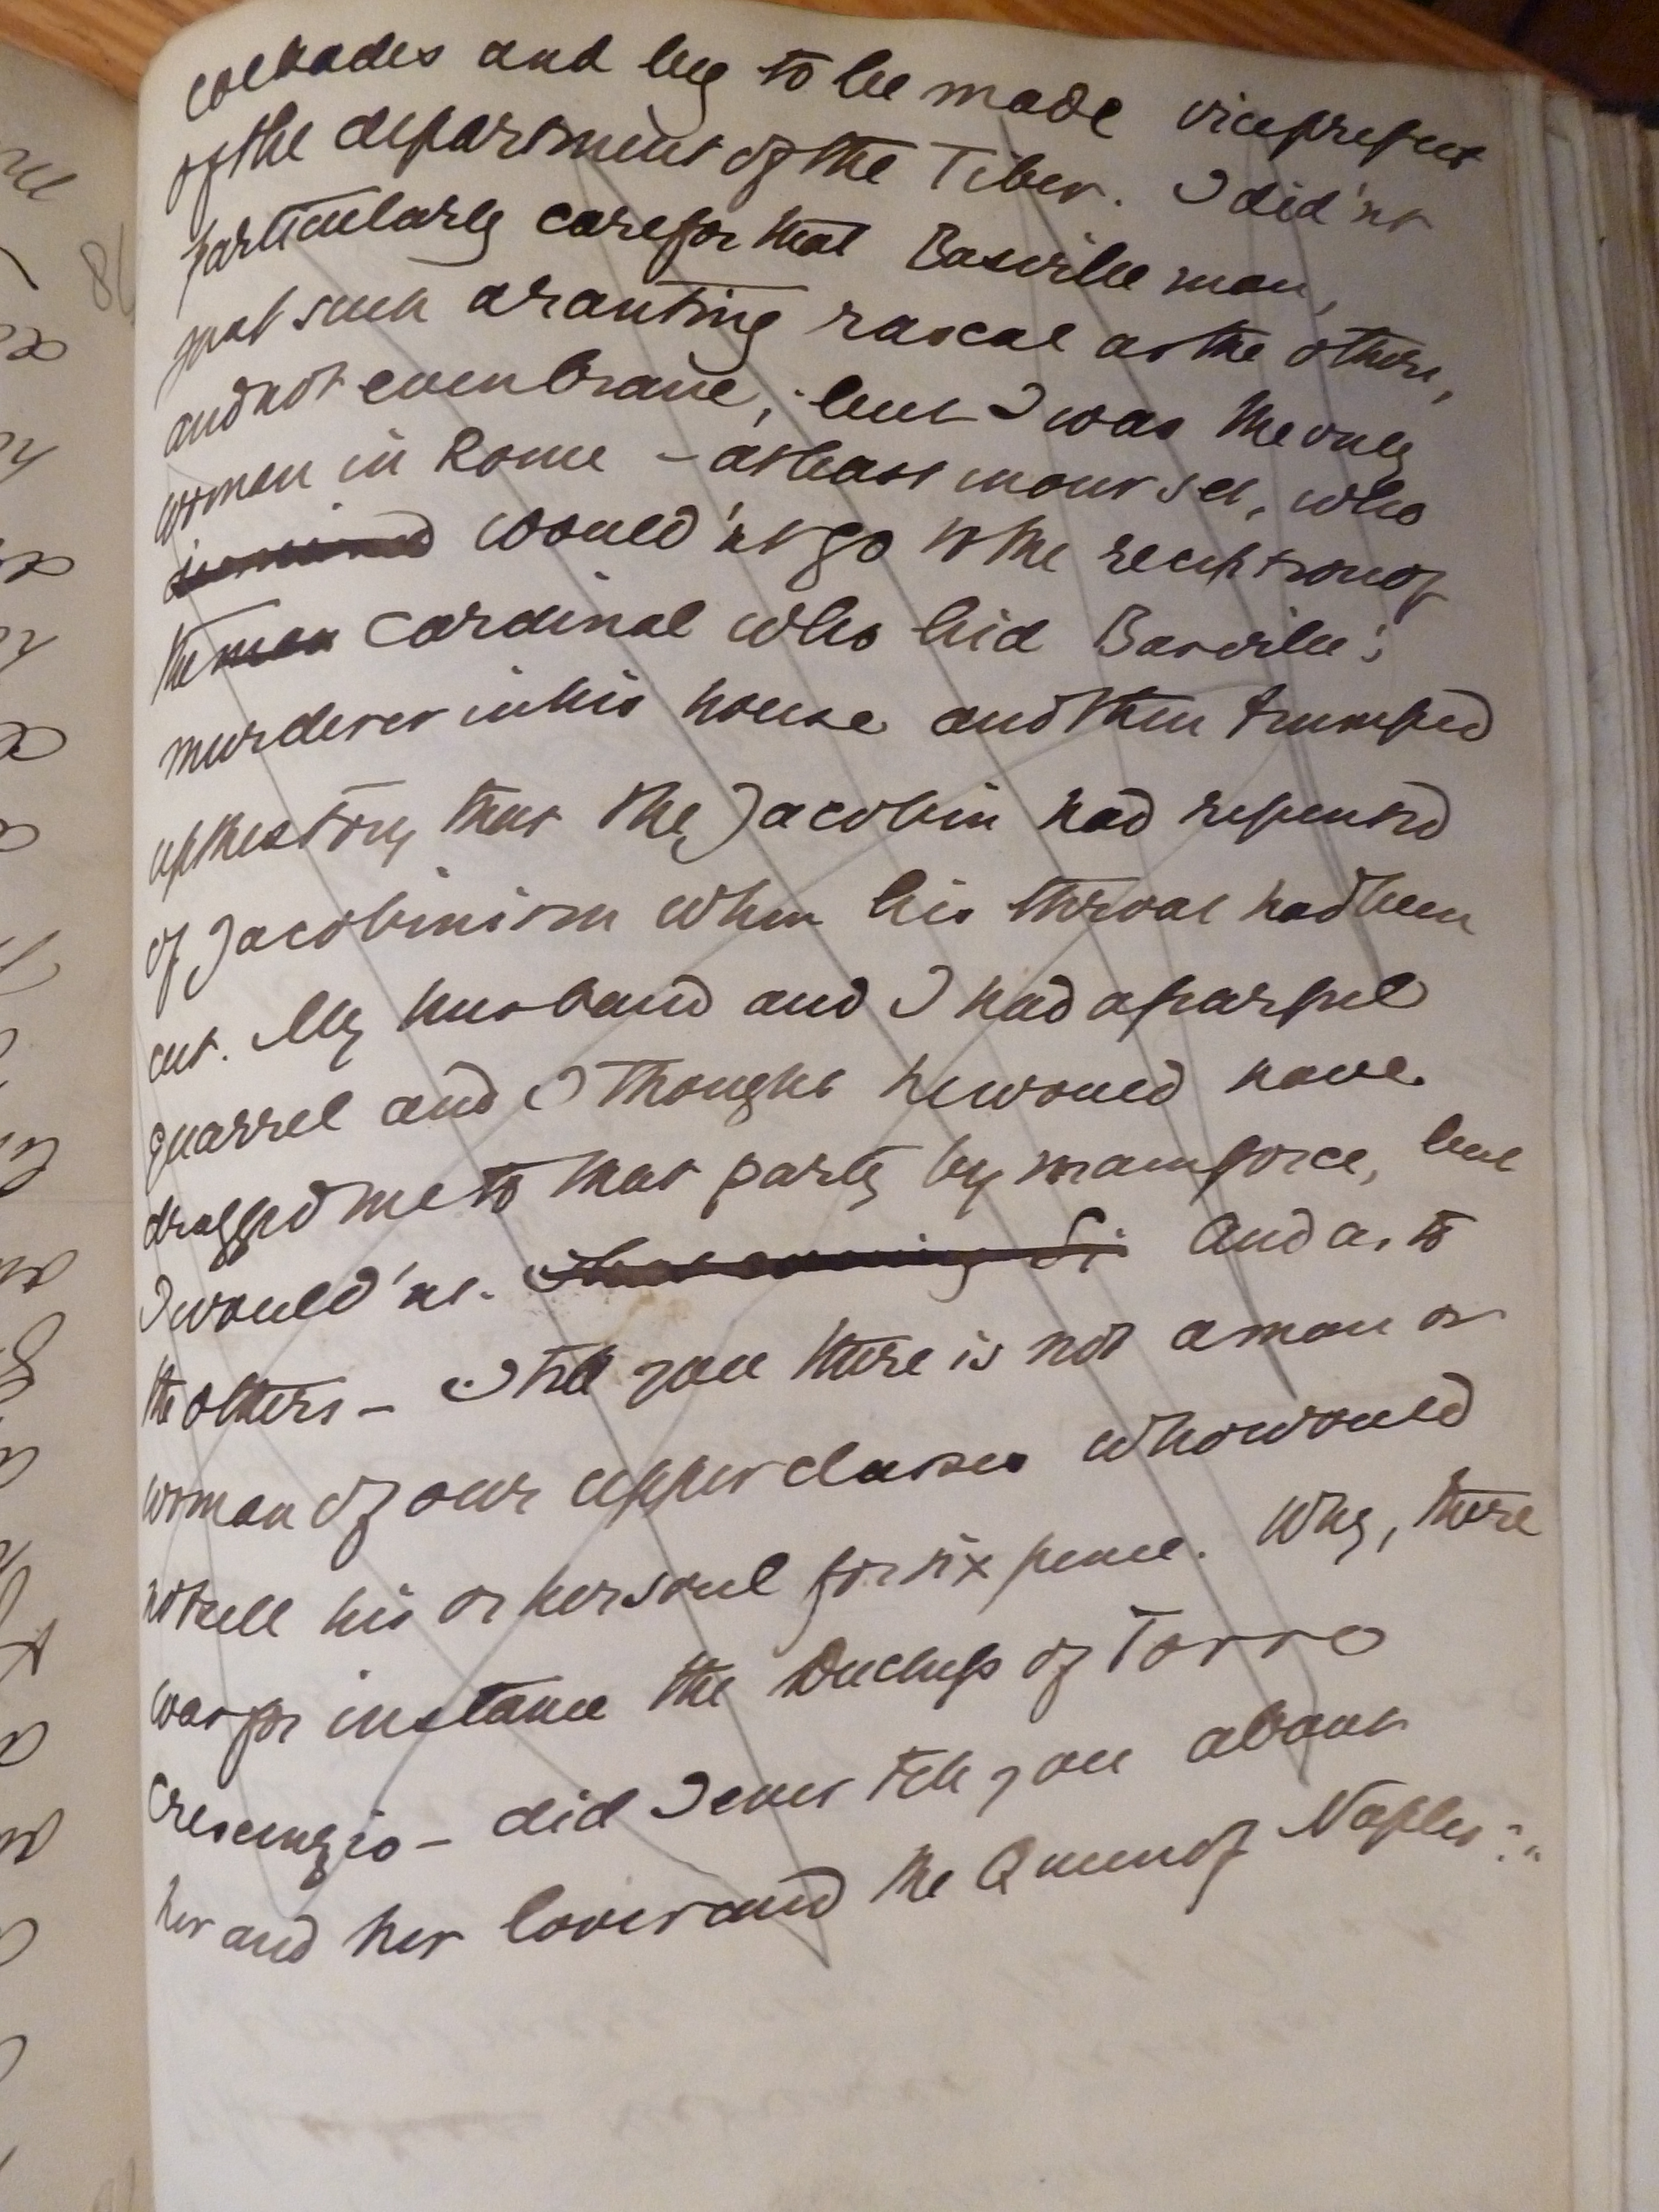 cockades and beg to be made viceprefect
of the department of the Tiber. I did'nt
particularly care for that Basville man,
just such a ranting rascal as the others,
and not even brave; but I was the only
woman in Rome – at least in our set, who
would'nt go to the reception of
the man Cardinal who hid Basville's
murderer in his house and then trumped
up the story that the Jacobin had repented
of Jacobinism when his throat had been
cut. My husband and I had a fearful
quarrel and I thought he would have
dragged me to that party by main force, but
I would'nt. That evening Si And as to
the others – I tell you there is not a man or
woman of our upper classes who would
not sell his or her soul for six pence. Why, there
was for instance the Duchess of Torre
Crescenzio – did I ever tell you about
her and her lover and the Queen of Naples?"